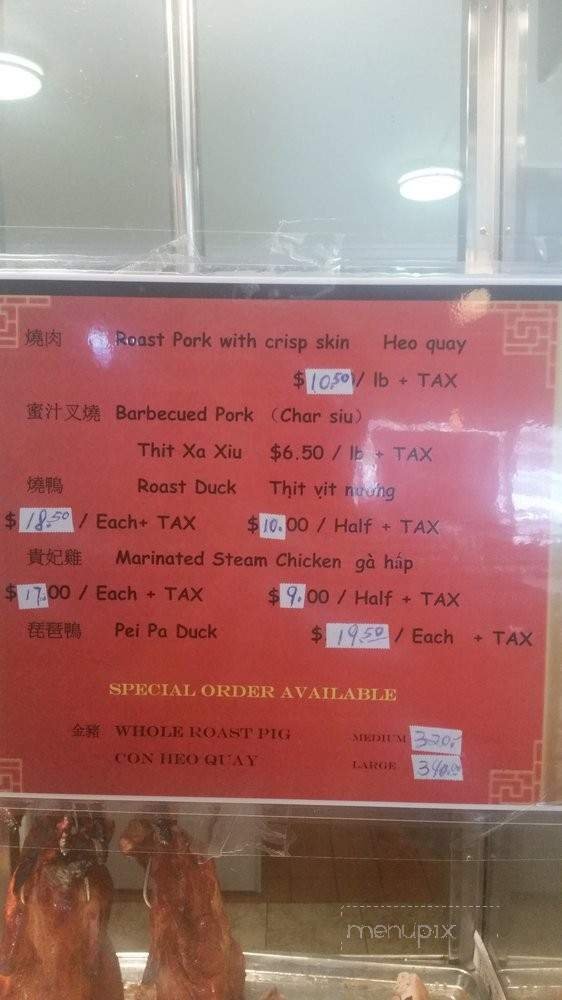 燒肉 Roast Pork with crisp skin Heo quay
$10.50/ lb + TAX
蜜汁叉燒 Barbecued Pork （Char siu）
Thit Xa Xiu $6.50 / lb + TAX
燒鴨 Roast Duck Thịt vịt nướng
$18.50 / Each+ TAX $10.00 / Half + TAX
貴妃雞 Marinated Steam Chicken gà hấp
$17.00 / Each + TAX $9.00 / Half + TAX
琵琶鴨 Pei Pa Duck $19.50 / Each + TAX
SPECIAL ORDER AVAILABLE
金豬 WHOLE ROAST PIG MEDIUM 320.
CON HEO QUAY LARGE 340.00
menupix